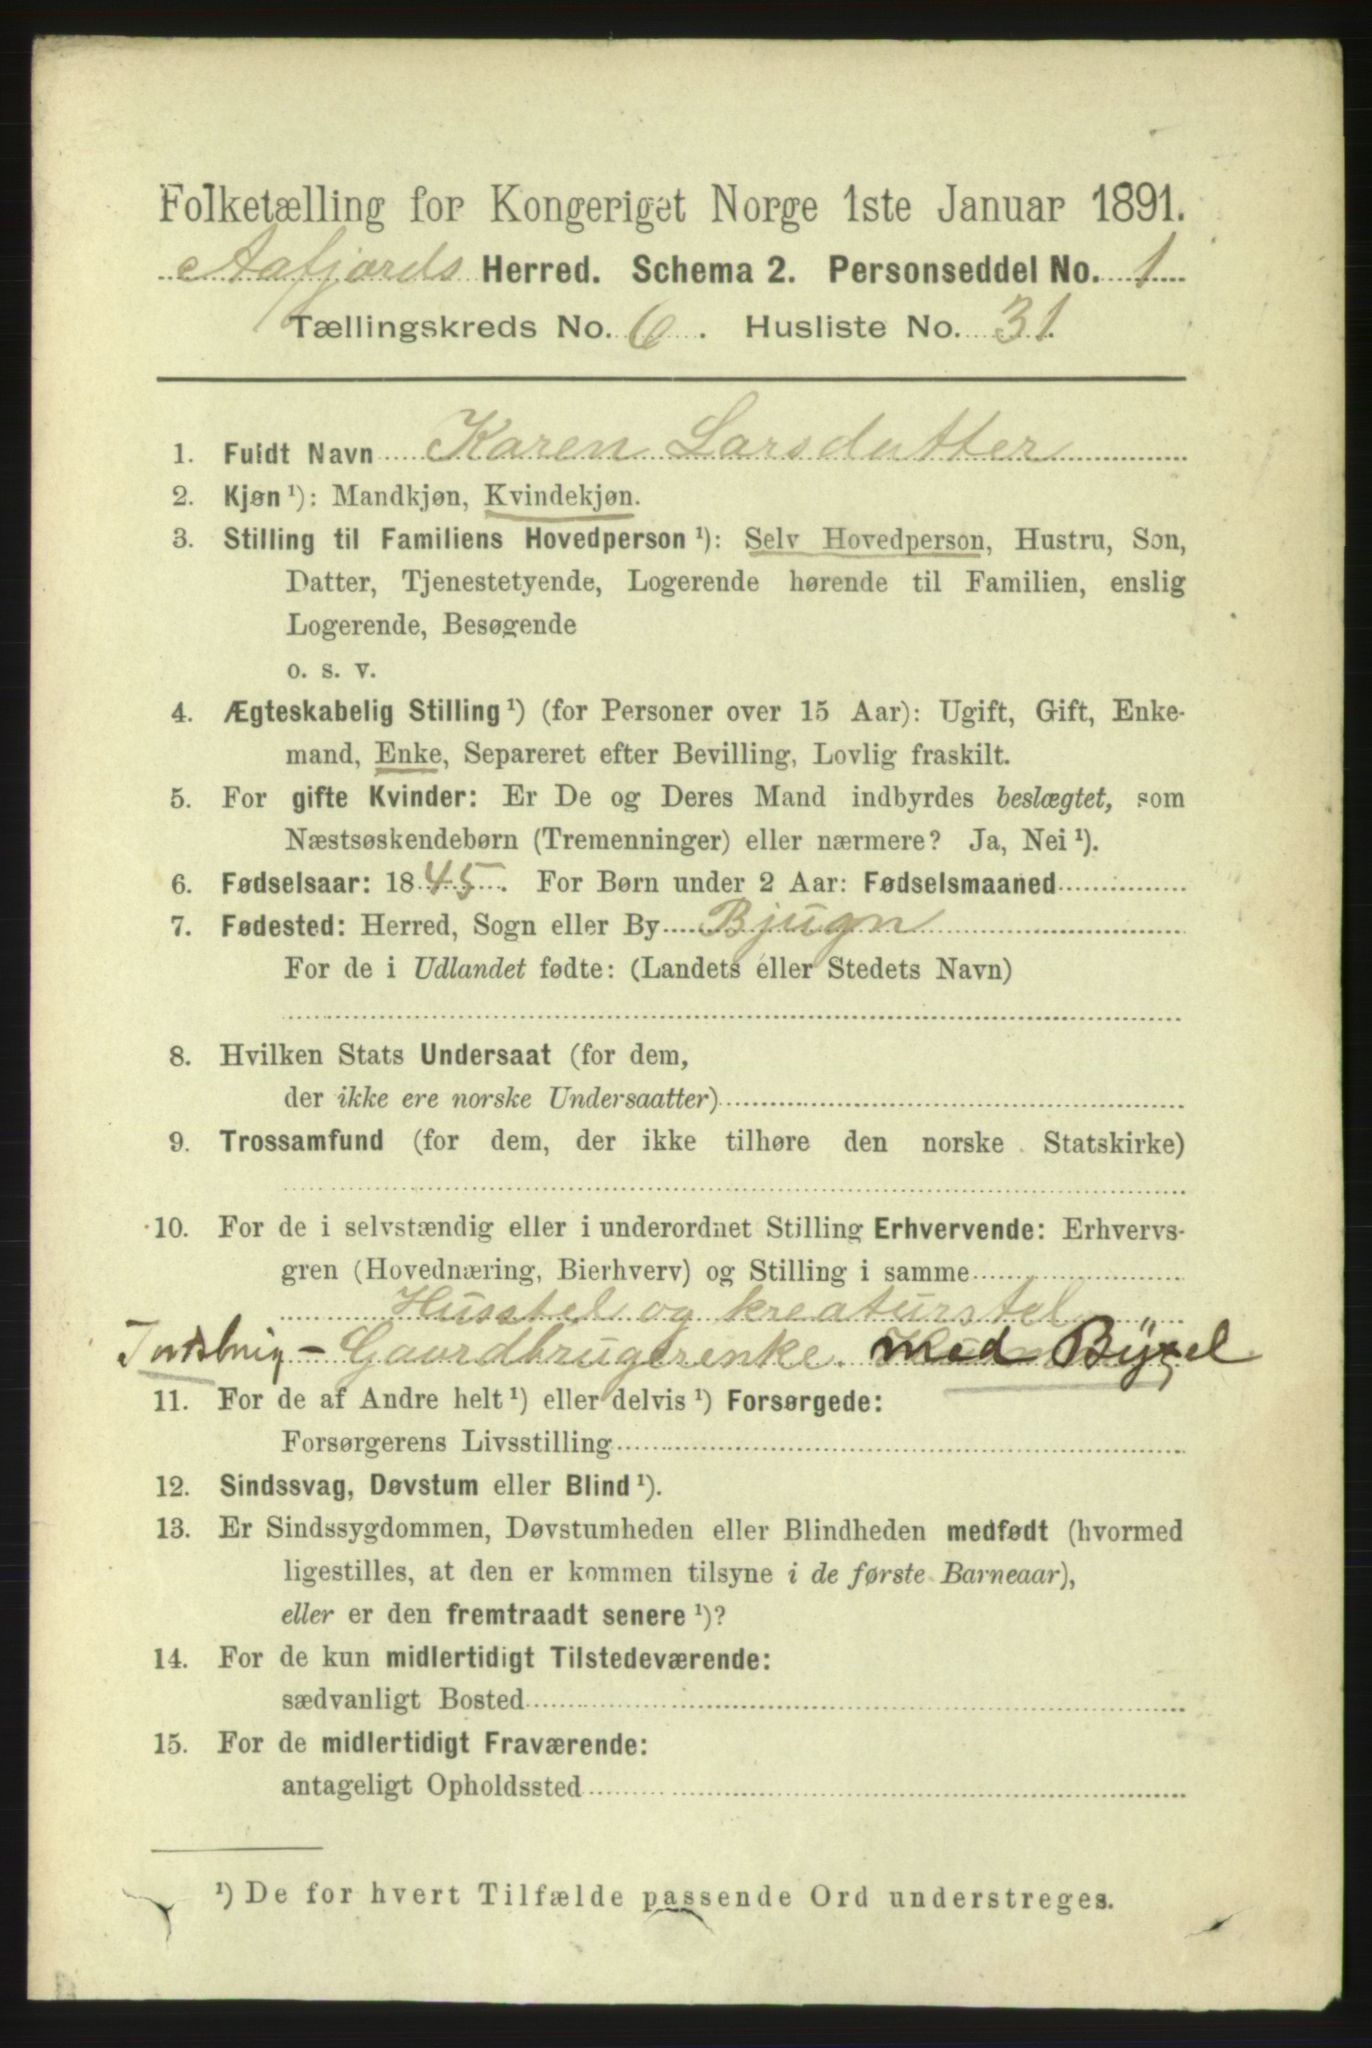 Folketælling for Kongeriget Norge 1ste Januar 1891.
Aafjords Herred. Schema 2. Personseddel No. 1
Tællingskreds No. 6. Husliste No. 31.
1. Fuldt Navn Karen Larsdatter
2. Kjøn ¹): Mandkjøn, Kvindekjøn.
3. Stilling til Familiens Hovedperson ¹): Selv Hovedperson, Hustru, Søn,
Datter, Tjenestetyende, Logerende hørende til Familien, enslig
Logerende, Besøgende
o. s. v.
4. Ægteskabelig Stilling ¹) (for Personer over 15 Aar): Ugift, Gift, Enke-
mand, Enke, Separeret efter Bevilling, Lovlig fraskilt.
5. For gifte Kvinder: Er De og Deres Mand indbyrdes beslægtet, som
Næstsøskendebørn (Tremenninger) eller nærmere? Ja, Nei ¹).
6. Fødselsaar: 1845. For Børn under 2 Aar: Fødselsmaaned
7. Fødested: Herred, Sogn eller By Bjugn
For de i Udlandet fødte: (Landets eller Stedets Navn)
8. Hvilken Stats Undersaat (for dem,
der ikke ere norske Undersaatter)
9. Trossamfund (for dem, der ikke tilhøre den norske Statskirke)
10. For de i selvstændig eller i underordnet Stilling Erhvervende: Erhvervs-
gren (Hovednæring, Bierhverv) og Stilling i samme
Husstel og kreaturstel
Jordsbrug - Gaardbrugerenke. med Býxel
11. For de af Andre helt ¹) eller delvis ¹) Forsørgede:
Forsørgerens Livsstilling
12. Sindssvag, Døvstum eller Blind ¹).
13. Er Sindssygdommen, Døvstumheden eller Blindheden medfødt (hvormed
ligestilles, at den er kommen tilsyne i de første Barneaar),
eller er den fremtraadt senere ¹)?
14. For de kun midlertidigt Tilstedeværende:
sædvanligt Bosted
15. For de midlertidigt Fraværende:
antageligt Opholdssted
¹) De for hvert Tilfælde passende Ord understreges.